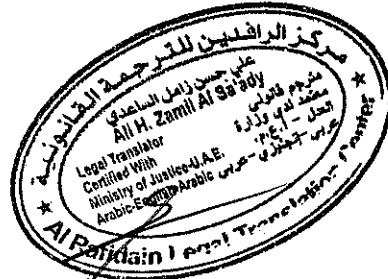 مركز الرافدين للترجمة القانونية
علي حسن زامل الساعدي
Ali H. Zamil Al Sa'ady
مترجم قانوني
معتمد لدى وزارة
العدل - أ.ع.م.
عربي - إنجليزي - عربي
Legal Translator
Certified With
Ministry of Justice-U.A.E.
Arabic-English-Arabic
Al Rafidain Legal Translation Center